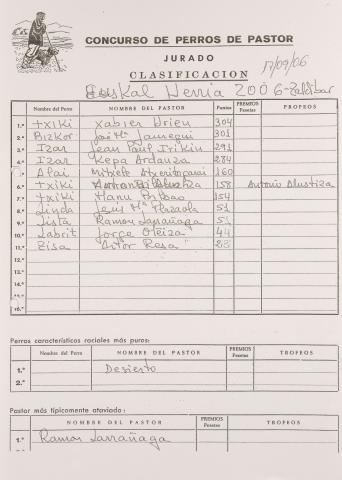 CONCURSO DE PERROS DE PASTOR
JURADO
CLASIFICACION 17/09/06
Euskal Herria 2006-Zaldibar
Nombre del Perro NOMBRE DEL PASTOR Puntos PREMIOS Pesetas TROFEOS
1.º txiki Xabier Urien 304
2.º Bizkor José Mª Jauregui 301
3.º Izar Jean Paul Irikin 291
4.º Izar Kepa Ardanza 284
5.º Alai Mitxele 160
6.º txiki 158 Antonio Alustiza
7.º txiki Manu Bilbao 154
8.º Linda Jesús Mª Plazaola 51
9.º Lista Ramon Larrañaga 51
10.º Labrit Jorge Oteiza 44
11.º Zisa Aitor Resa 28
12.º
13.º
14.º
15.º
16.º
Perros característicos raciales más puros:
Nombre del Perro NOMBRE DEL PASTOR PREMIOS Pesetas TROFEOS
1.º Desierto
2.º
Pastor más típicamente ataviado:
NOMBRE DEL PASTOR PREMIOS Pesetas TROFEOS
1.º Ramon Larrañaga